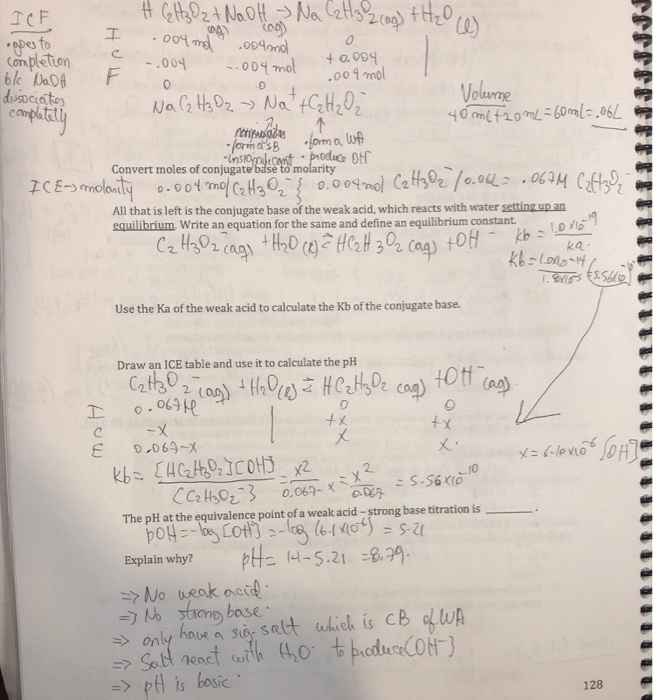 ICF
• goes to completion b/c NaOH dissociates completely
HC₂H₃O₂ + NaOH (aq) → NaC₂H₃O₂ (aq) + H₂O (l)
I .004 mol .004 mol 0
C -.004 -.004 mol +0.004
F 0 0 .004 mol
NaC₂H₃O₂ → Na⁺ + C₂H₃O₂⁻
Volume
40 mL + 20 mL = 60 mL = .06L
• form a SB • form a WA
• insignificant • produce OH⁻
Convert moles of conjugate base to molarity
ICE → molarity 0.004 mol C₂H₃O₂⁻ } 0.004 mol C₂H₃O₂⁻ / 0.06L = .067M C₂H₃O₂⁻
All that is left is the conjugate base of the weak acid, which reacts with water setting up an
equilibrium. Write an equation for the same and define an equilibrium constant.
C₂H₃O₂⁻ (aq) + H₂O (l) ⇌ HC₂H₃O₂ (aq) + OH⁻ Kb = 1.0x10⁻¹⁴ / Ka
Kb = 1.0x10⁻¹⁴ / 1.8x10⁻⁵ = 5.56x10⁻¹⁰
Use the Ka of the weak acid to calculate the Kb of the conjugate base.
Draw an ICE table and use it to calculate the pH
C₂H₃O₂⁻ (aq) + H₂O (l) ⇌ HC₂H₃O₂ (aq) + OH⁻ (aq)
I 0.067M 0 0
C -x +x +x
E 0.067-x x x
x = 6.10x10⁻⁶ [OH⁻]
Kb = [HC₂H₃O₂][OH⁻] / [C₂H₃O₂⁻] = x² / 0.067-x = x² / 0.067 = 5.56x10⁻¹⁰
The pH at the equivalence point of a weak acid – strong base titration is ________.
pOH = -log [OH⁻] = -log (6.1x10⁻⁶) = 5.21
Explain why? pH = 14 - 5.21 = 8.79.
⇒ No weak acid.
⇒ No strong base.
⇒ only have a sig. salt which is CB of WA
⇒ Salt react with H₂O to produce [OH⁻]
⇒ pH is basic.
128